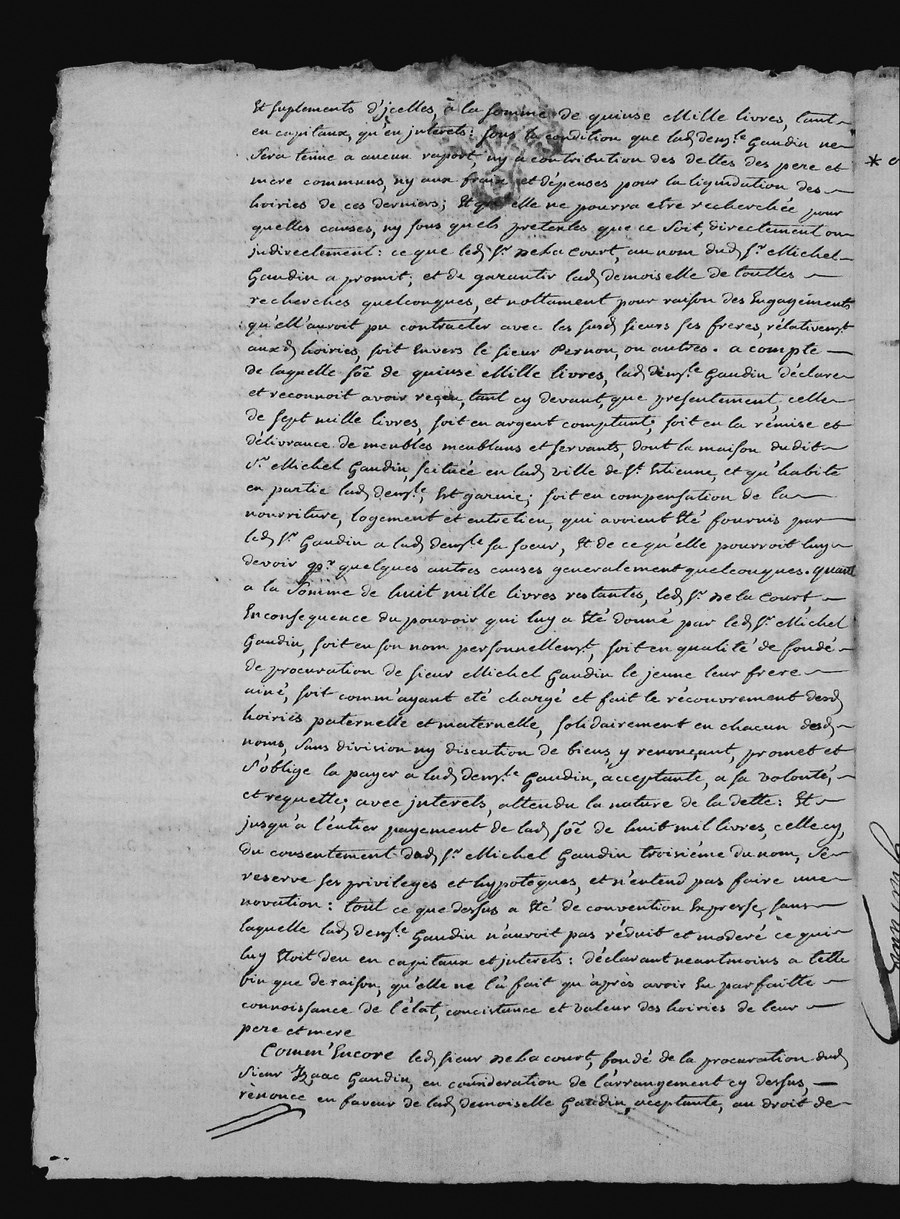 Et suplements d'jcelles, à la somme de quinse Mille livres, tant
en capitaux, qu'en jnterets: sous la condition que lad. demslle Gaudin ne
sera tenue a aucun raport, ny a contribution des dettes des pere et
mere communs, ny aux fraix et dépenses pour la liquidation des
hoiries de ces derniers; Et qu'elle ne pourra etre recherchée pour
quelles causes, ny sous quels pretextes que ce soit, directement ou
judirectement: ce que led. Sr. Delacourt, au nom dud. Sr. Michel
Gaudin a promit; et de garantir lad. demoiselle de touttes
recherches quelconques, et nottament pour raison des Engagements
qu'ell'auroit pu contracter avec les susd. sieurs ses freres, rélativemt.
auxd. hoiries, soit Envers le sieur Pernon, ou autres. a compte
de laquelle soẽ de quinse Mille livres, lad. demslle Gaudin déclare
et reconnoit avoir reçeu, tant cy devant, que presentement, celle
de sept mille livres, soit en argent comptant, soit en la rémise et
délivrance de meubles meublans et servants, dont la maison dudit
Sr. Michel Gaudin, scituée en lad. ville de St. Etienne, et qu'habite
en partie lad. demslle, Est garnie; soit en compensation de la
nourriture, logement et entretien, qui avoient Eté fournis par
led. Sr. Gaudin a lad. demslle sa soeur, Et de ce qu'elle pourroit luy
devoir pr. quelques autres causes generalement quelconques. quant
a la Somme de huit mille livres restantes, led. Sr. Delacourt
Enconsequence du pouvoir qui luy a Eté donné par led. Sr. Michel
Gaudin, soit en son nom personnellemt., soit en qualité de fondé
de procuration de sieur Michel Gaudin le jeune leur frere
ainé, soit comm'ayant eté chargé et fait le récouvrement desd.
hoiries paternelle et maternelle, solidairement en chacun desd.
noms, sans division ny discution de biens, y renonçant, promet et
s'oblige la payer a lad. demslle Gaudin, acceptante, a sa volonté,
et requette; avec jnterets, attendu la nature de la dette: Et
jusqu'a l'éntier payement de lad. soẽ de huit mil livres, celle cy,
du consentement dud. Sr. Michel Gaudin troisiéme du nom, se
reserve ses privileges et hypoteques, et n'entend pas faire une
novation: tout ce que dessus a Eté de convention Expresse, sans
laquelle lad. demslle Gaudin n'auroit pas réduit et moderé ce qui
luy Etoit deu en capitaux et jnterets: déclarant neantmoins a telle
fin que de raison, qu'elle ne l'à fait qu'àprès avoir Eu parfaitte
connoissance de l'état, concistance et valeur des hoiries de leur
pere et mere
Comm'Encore led. sieur Delacourt, fondé de la procuration dud.
sieur Izaac Gaudin, en consideration de l'arrangement cy dessus,
rènonce en faveur de lad. demoiselle Gaudin, acceptante, au droit de